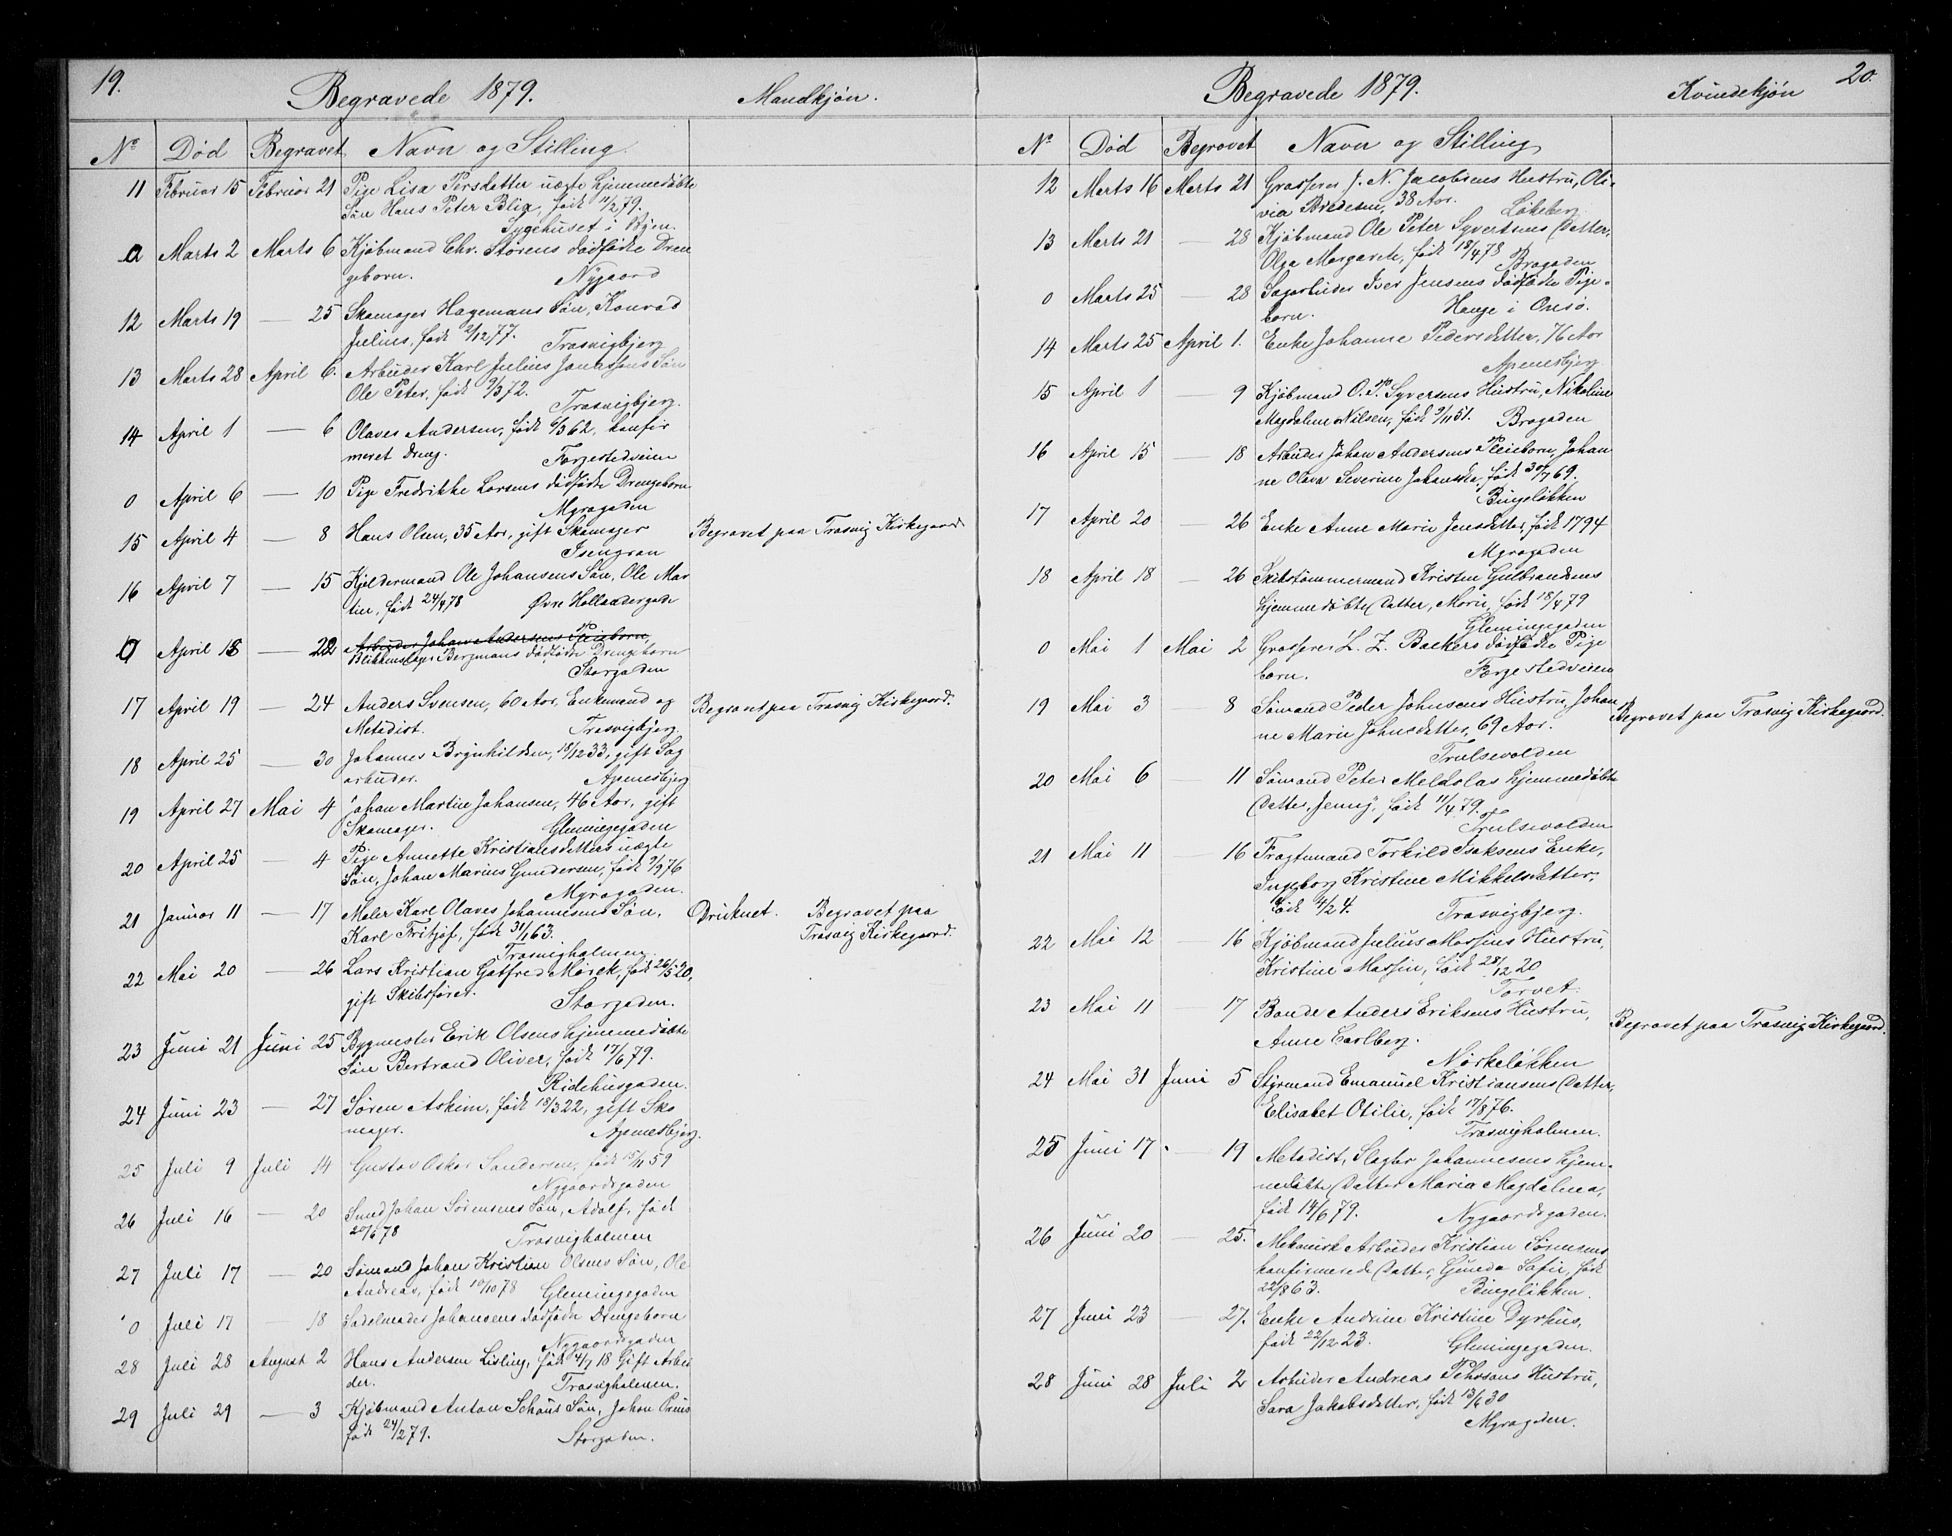 19.
Begravede 1879.
Mandkjøn.
Nº Død Begravet Navn og Stilling.
11 Februar 15 Februar 21 Pige Lisa Persdatter uægte hjemmedøbte
Søn Hans Peter Blix, født 11/2 79.
Sygehuset i Byen.
0 Marts 2 Marts 6 Kjøbmand Chr. Størens dødfødte Dren
geborn. Nygaard
12 Marts 19 — 25 Skomager Hagemans Søn, Konrad
Julius, født 2/12 77. Trosvigbjerg
13 Marts 28 April 6. Arbeider Karl Julius Søn
Ole Peter, født 9/3 72. Trosvigbjerg.
14 April 1 — 6 Olaves Andersen, født 6/3 62, konfir
meret dreng. Færjestedveien
0 April 6 — 10 Pige Fredrikke Larsens dødfødte Drengeborn
Myragaden
15 April 4 — 8 Hans Olsen, 35 Aar, gift Skomager Begravet paa Trosvig Kirkegaard
Isengran
16 April 7 — 15 Kjeldermand Ole Johansens Søn, Ole Mar
tin, født 24/4 78 Øvre Hollændergade
0 April 18 — 22 Arbeider Johan Andersens Pleieborn,
Blikkenslager Bergmans dødfødte Drengeborn
Storgaden
17 April 19 — 24 Anders Svensen, 60 Aar, Enkemand og Begravet paa Trosvig Kirkegaard.
Metodist. Trosvigbjerg
18 April 25 — 30 Johannes Brynhildsen, 18/12 33, gift Sag
arbeider. Apenesbjerg
19 April 27 Mai 4 Johan Martin Johansen, 46 Aar, gift
Skomager. Glemingegaden
20 April 25 — 4 Pige Annette Kristiansdatters uægte
Søn, Johan Marius Gundersen, født 9/9 76
Myragaden.
21 Januar 11 — 17 Maler Karl Olaves Johannesens Søn, Druknet. Begravet paa
Karl Fritjof, født 31/1 63. Trosvig Kirkegaard.
Trosvigholmen
22 Mai 20 — 26 Lars Kristian Gotfred Mørck, født 26/5 20,
gift Skibsfører. Storgaden.
23 Juni 21 Juni 25 Bygmester Erik Olsens hjemmedøbte
Søn Bertrand Oliver, født 17/6 79.
Ridehusgaden.
24 Juni 23 — 27 Søren Askim, født 18/3 22, gift Sko
mager. Apenesbjerg.
25 Juli 9 Juli 14 Gustav Oskar Sandersen, født 15/11 59
Nygaardsgaden
26 Juli 16 — 20 Smed Johan Sørensens Søn, Adolf, født
20/6 78 Trosvigholmen
27 Juli 17 — 20 Sømand Johan Kristian Olsens Søn, Ole
Andreas, født 10/10 78 Glemingegaden
0 Juli 17 — 18 Sadelmager Johansens dødfødte Drengeborn
Nygaardsgaden
28 Juli 28 August 2 Hans Andersen Lisling, født 4/7 18 Gift Arbei
der. Trosvigholmen.
29 Juli 29 — 3 Kjøbmand Anton Schous Søn, Johan
født 24/2 79. Storgaden.
20.
Begravede 1879.
Kvindekjøn
Nº Død Begravet Navn og Stilling
12 Marts 16 Marts 21 Grosserer J. N. Jacobsens Hustru, Oli-
via Bredesen, 38 Aar. Løkeberg
13 Marts 21 — 28 Kjøbmand Ole Peter Syvertsens Datter,
Olga Margarete, født 18/4 78 Brogaden
0 Marts 25 — 28 Sagarbeider Iver Jensens dødfødte Pige-
born. Hauge i Onsø.
14 Marts 25 April 1. Enke Johanne Pedersdatter, 76 Aar
Apenesbjerg
15 April 1 — 9 Kjøbmand O. P. Syversens Hustru, Nikoline
Magdalene Nilsen, født 9/11 51. Brogaden
16 April 15 — 18 Arbeider Johan Andersens Pleieborn, Johan
ne Olava Severine, født 30/7 69.
Bingeløkken
17 April 20 — 26 Enke Anne Marie Jensdatter, født 1794
Myragaden
18 April 18 — 26 Skibstømmermand Kristen Gulbrandsens
hjemmedøbte Datter, Marie, født 18/4 79
Glemingegaden
0 Mai 1 Mai 2 Grosserer L. Z. Backers dødfødte Pige
born. Færjestedveien
19 Mai 3 — 8 Sømand Peder Johnsens Hustru, Johan Begravet paa Trosvig Kirkegaard.
ne Marie Johnsdatter, 69 Aar.
Trulsevolden
20 Mai 6 — 11 Sømand Peter Meldolas hjemmedøbte
Datter, Jenny, født 11/4 79.
Trulsevolden
21 Mai 11 — 16 Fragtemand Torkild Isaksens Enke,
Ingeborg Kristine Mikkelsdatter,
født 4/1 24. Trosvigbjerg.
22 Mai 12 — 16 Kjøbmand Julius Massins Hustru,
Kristine Massin, født 28/12 20
Torvet.
23 Mai 11 — 17 Bonde Anders Eriksens Hustru, Begravet paa Trosvig Kirkegaard.
Anne Carlberg.
Nørkeløkken
24 Mai 31 Juni 5 Styrmand Emanuel Kristiansens Datter,
Elisabet Otilie, født 17/8 76.
Trosvigholmen.
25 Juni 17 - 19 Metodist, Slagter Johannesens hjem-
medøbte Datter Maria Magdalena,
født 14/6 79. Nygaardsgaden.
26 Juni 20 — 25. Mekanisk Arbeider Kristian Sørensens
konfirmerede Datter, Gunda Sofie, født
22/8 63. Bingeløkken.
27 Juni 23 — 27. Enke Andrine Kristine Dyrhus,
født 22/12 23. Glemingegaden.
28 Juni 28 Juli 2 Arbeider Andreas Pehrsons Hustru,
Sara Jakobsdatter, født 13/6 30
Myragaden.